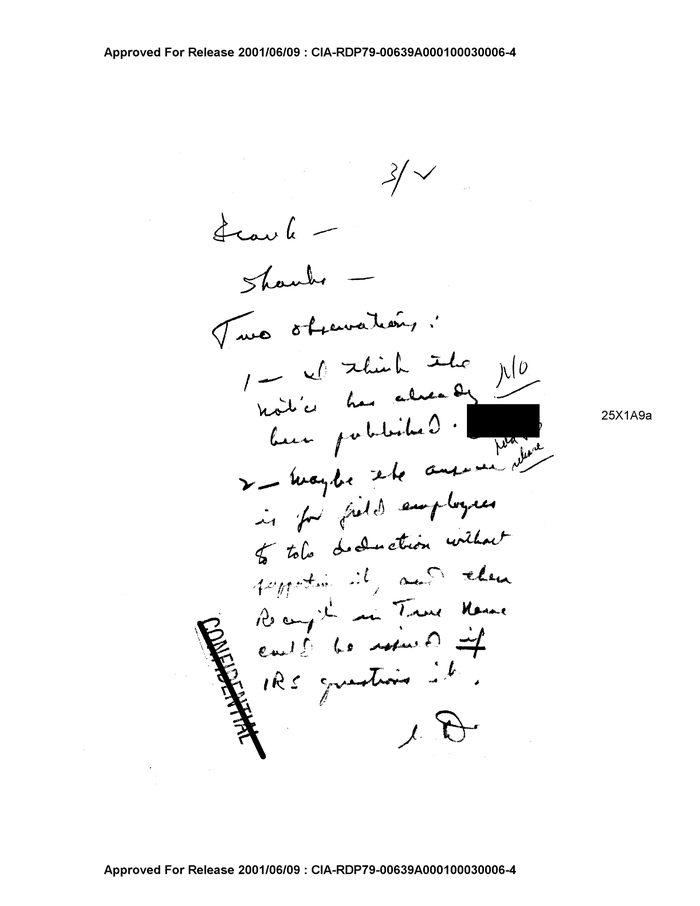 Approved For Release 2001/06/09 : CIA-RDP79-00639A000100030006-4
3/
Frank —
Thanks —
Two observations:
1 — I think the
NO
notice has already
been published.
25X1A9a
release
2 — Maybe the answer
is for field employees
to take deduction without
it, and then
Receipt in True Name
could be issued if
IRS questions it.
CONFIDENTIAL
Approved For Release 2001/06/09 : CIA-RDP79-00639A000100030006-4